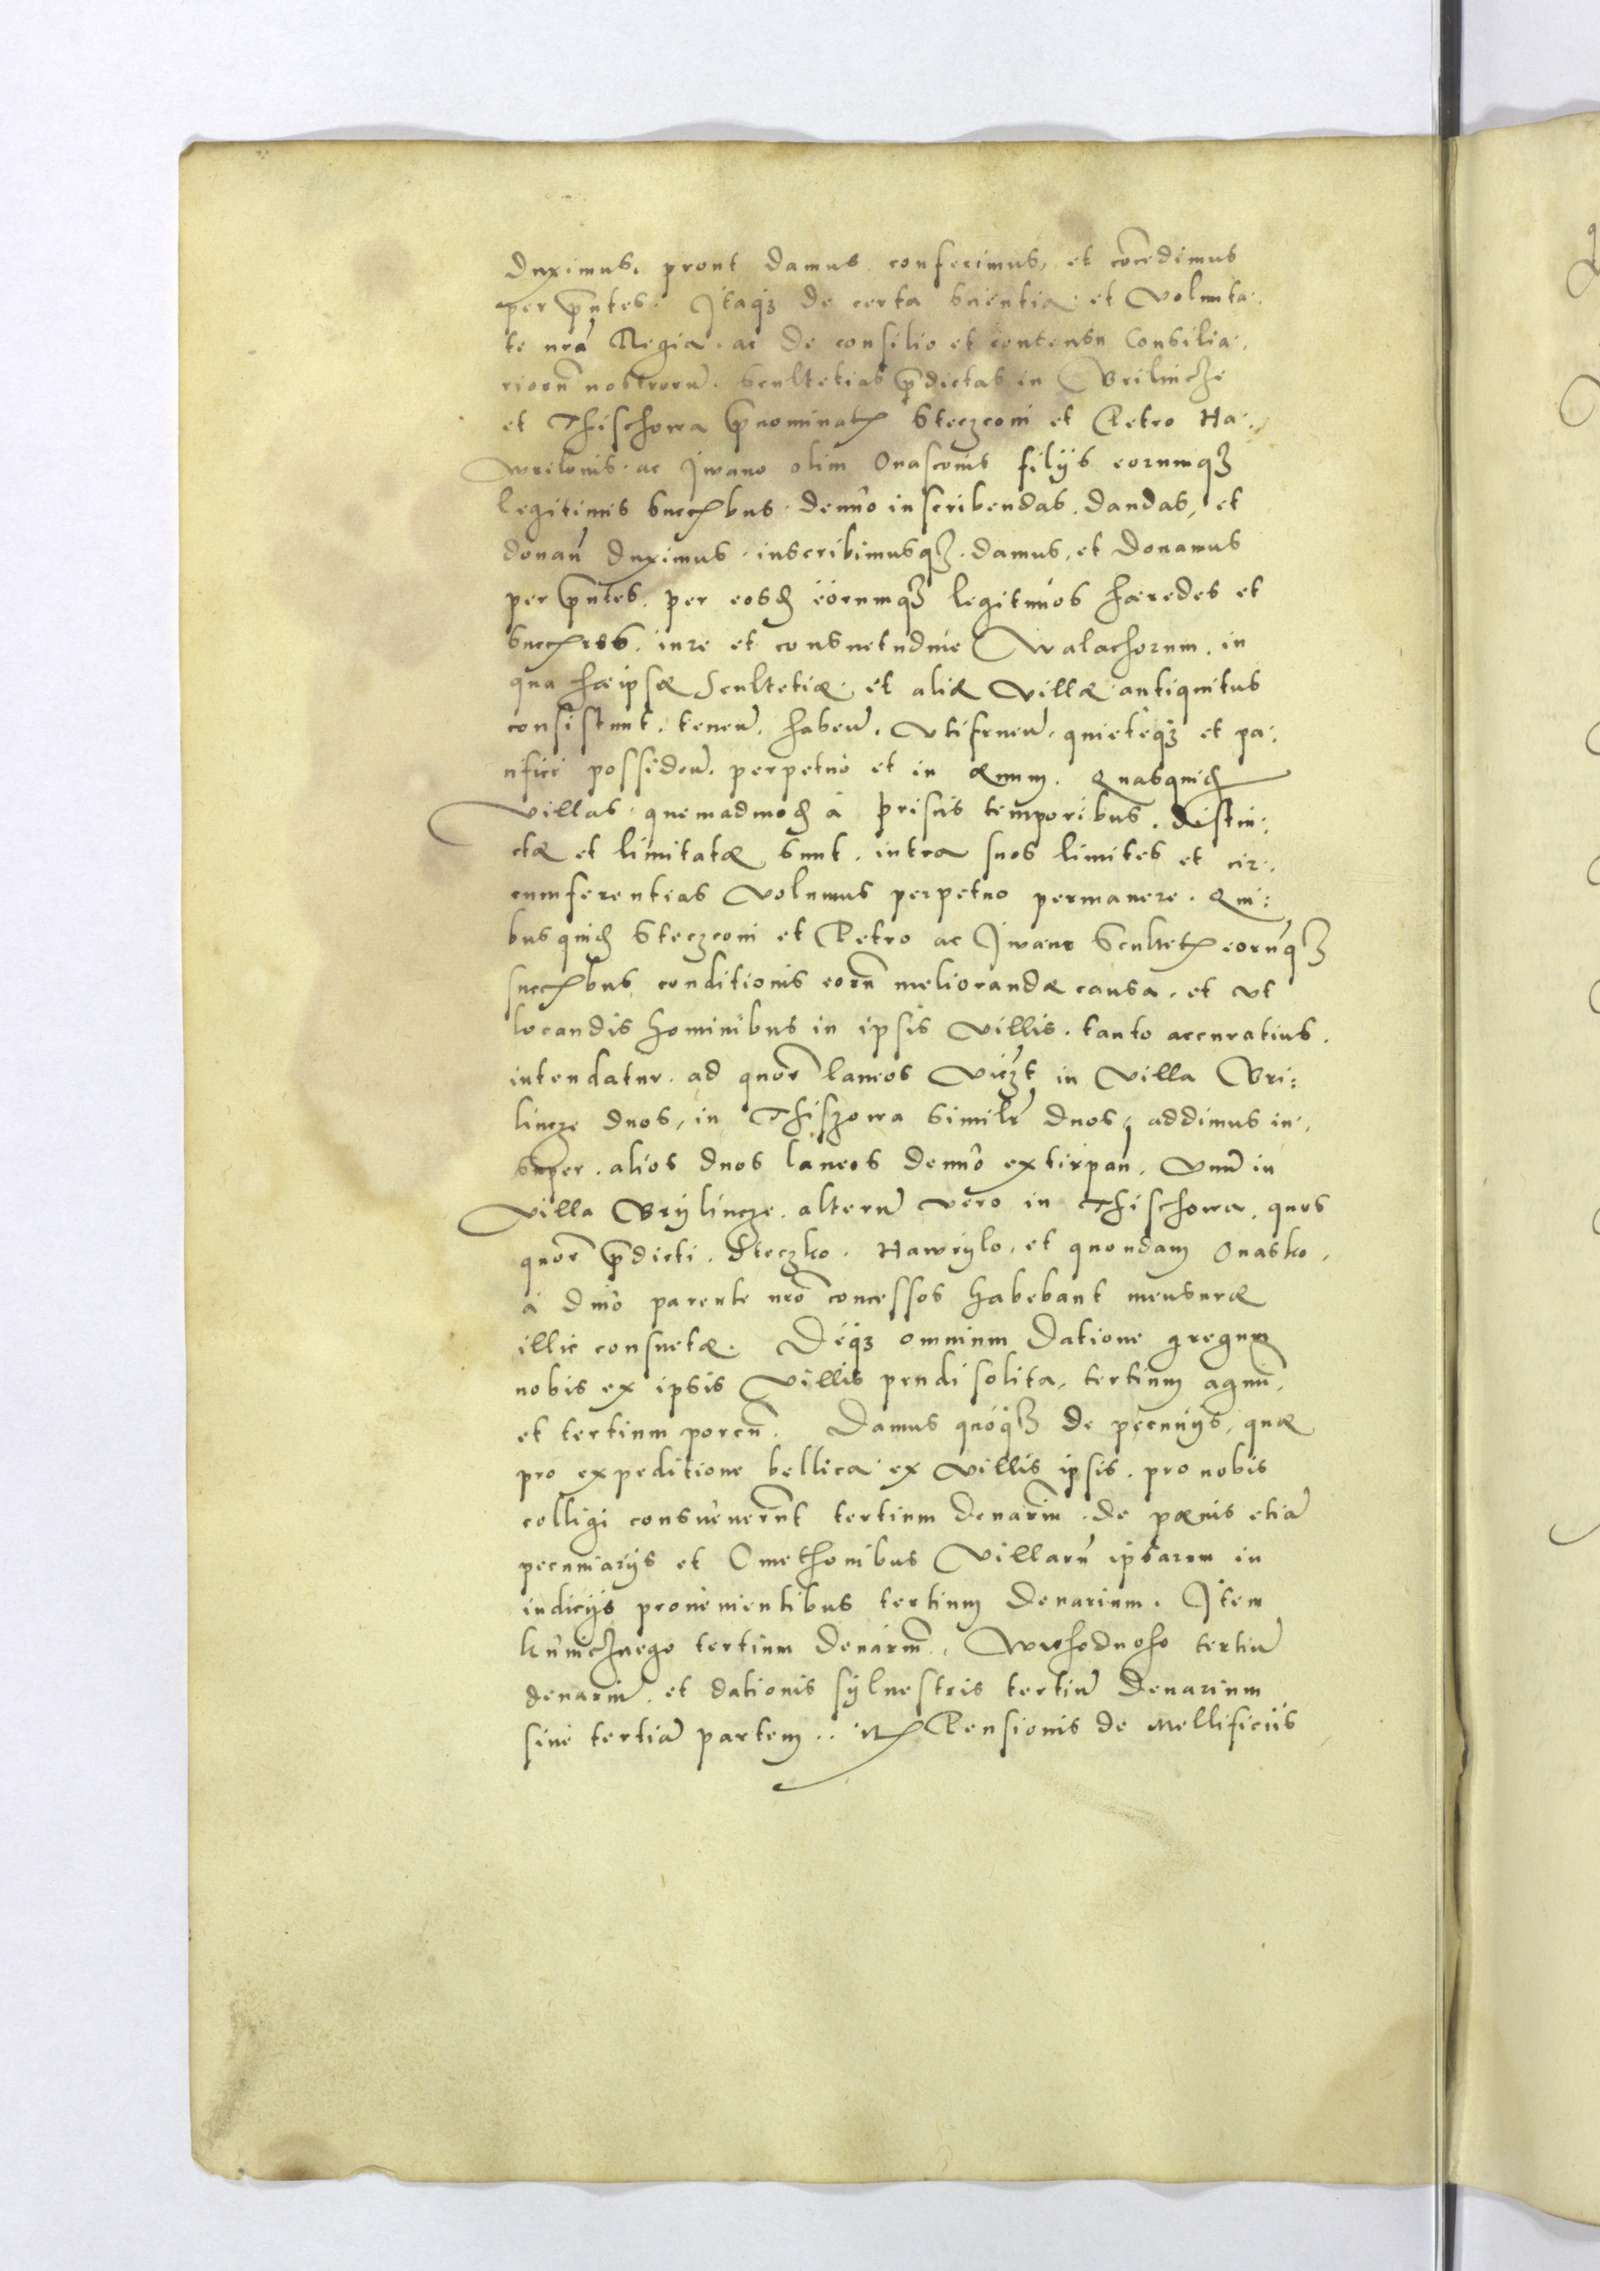 duximus. prout damus conferimus, et cõcedimus
per p̃ntes. Itaqȝ de certa scientia et volunta-
te nr̃a Regia. ac de consilio et consensu Consilia-
riorũ nostrorũ. scultetias p̃dictas in Brilincze
et Thischowa p̃nominatꝭ Steczconi et Petro Ha-
wrilonis. ac Iwano olim Onasconis filijs eorumqȝ
legitimis succꝭbus. denuo inscribendas. dandas, et
donan̄ duximus. inscribimusqȝ. damus, et donamus
per p̃ntes. per eosd eorumqȝ legitimos hæredes et
succꝭres. iure et consuetudine Walachorum. in
qua hæ ipsæ Scultetiæ et aliæ villæ antiquitus
consistunt. tenen̄. haben̄. vtifruen̄. quieteqȝ et pa-
cifice possiden̄. perpetuo et in æuum. Quasquid
villas quemadmod à priscis temporibus. distin-
ctæ et limitatæ sunt. intra suos limites et cir-
cumferentias volumus perpetuo permanere. Qui-
busquid Steczconi et Petro ac Iwano Scultetꝭ eorũqȝ
succꝭbus conditionis eorũ meliorandæ causa. et vt
locandis hominibus in ipsis villis. tanto accuratius.
intendatur. ad quor̃ laneos viczt in villa Bri-
lincze duos, in Thiszowa simil̃r duos, addimus in-
super. alios duos laneos denuo extirpan̄. vnũ in
villa Brÿlincze. alterũ vero in Thischowa. quos
quor̃ p̃dicti. Steczko. Hawrÿlo, et quondam Onasko.
à diuo parente nrõ concessos habebant mensuræ
illic consuetæ. Deqȝ omnium datione gregum
nobis ex ipsis villis pendi solita, tertium agnũ,
et tertium porcũ. Damus quoqȝ de pecunijs, quæ
pro expeditione bellica ex villis ipsis. pro nobis
colligi consueuerũt tertium denariũ. de pœnis etiã
pecuniarijs et Cmethonibus villarũ ipsarum in
iudicijs prouenientibus tertium denarium. Item
kunicznego tertium denariũ. Wschodnoho tertiũ
denariũ. et dationis sÿluestris tertiũ denarium
siue tertiã partem.. itꝭ Pensionis de mellificiis